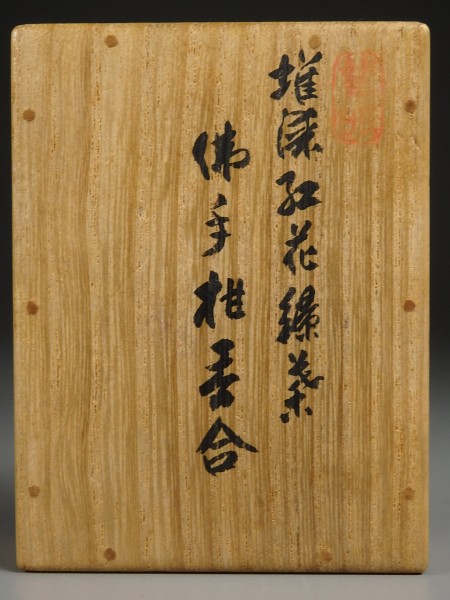 堆漆紅花緑葉
佛手柑香合